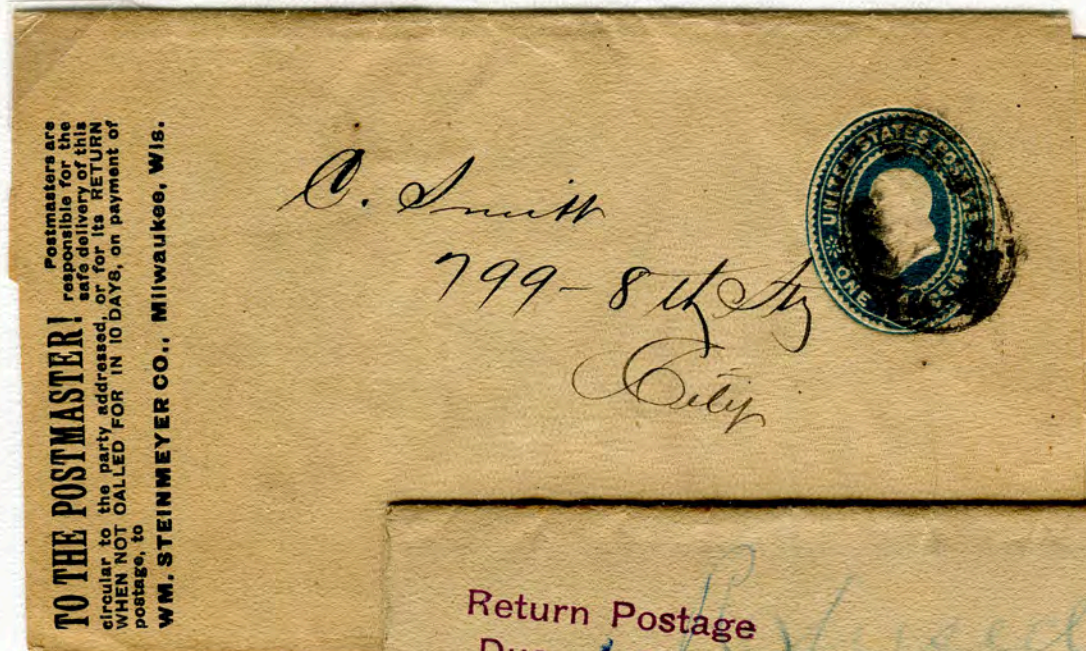 TO THE POSTMASTER! Postmasters are
responsible for the
safe delivery of this
circular to the party addressed, or for its RETURN
WHEN NOT CALLED FOR IN 10 DAYS, on payment of
postage, to
WM. STEINMEYER CO., Milwaukee, Wis.
C. Smith
799 - 8th St
City
UNITED STATES POSTAGE
ONE CENT
Return Postage